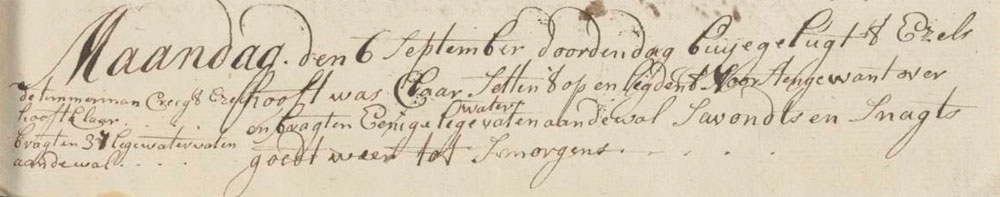 Maandag. den 6 September doordendag buijegelugt & Ezels
hooft was Claar Setten & op en legden & voor stengewant over
en bragten Eenige lege water vaten aandewal Savondts en Snagts
goedt weer tot Smorgens . . . . .
de timmerman Creeg & Ezels
hooft Claar.
bragten 37 legewatervaten
aandewal . . .